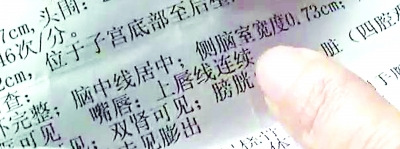 7cm, 头围:
46次/分。
2cm, 位于子宫底部至后壁
查:
不完整; 脑中线居中; 侧脑室宽度0.73cm;
嘴唇: 上唇线连续
可见; 双肾可见; 膀胱
脏 (四腔
见膨出